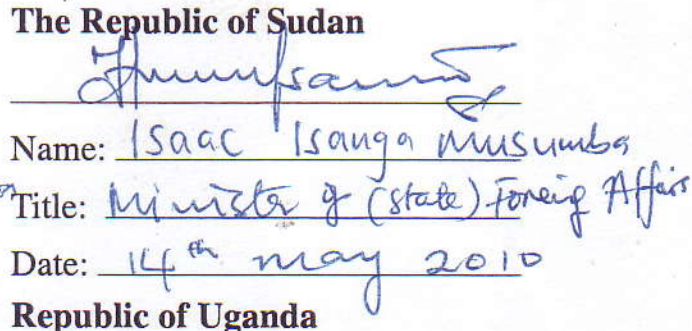 The Republic of Sudan
Name: Isaac Isanga Musumba
Title: Minister of (state) Foreig Affairs
Date: 14th may 2010
Republic of Uganda